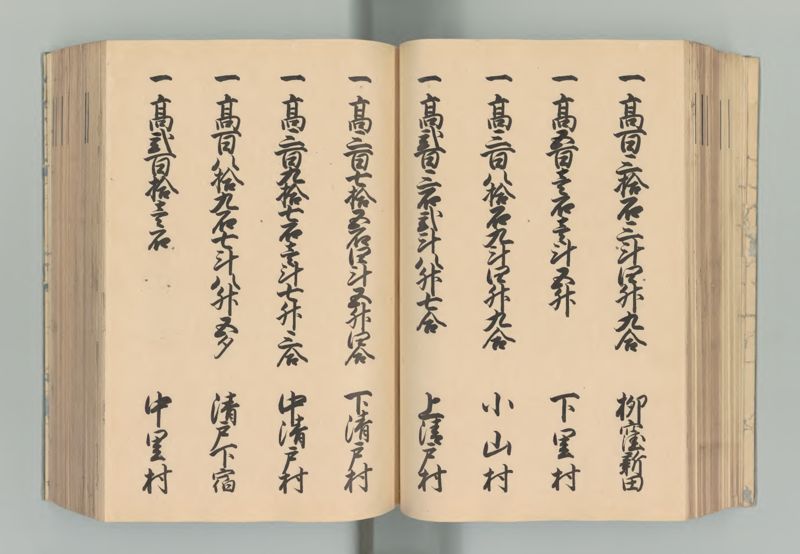 一高百三拾石三斗四升九合 柳窪新田
一高五百壱石壱斗五升 下里村
一高三百八拾石九斗四升九合 小山村
一高弐百三石弐斗八升七合 上清戸村
一高三百七拾五石四斗五升四合 下清戸村
一高三百九拾七石壱斗七升三合 中清戸村
一高百八拾九石七斗八升五夕 清戸下宿
一高弐百拾壱石 中里村